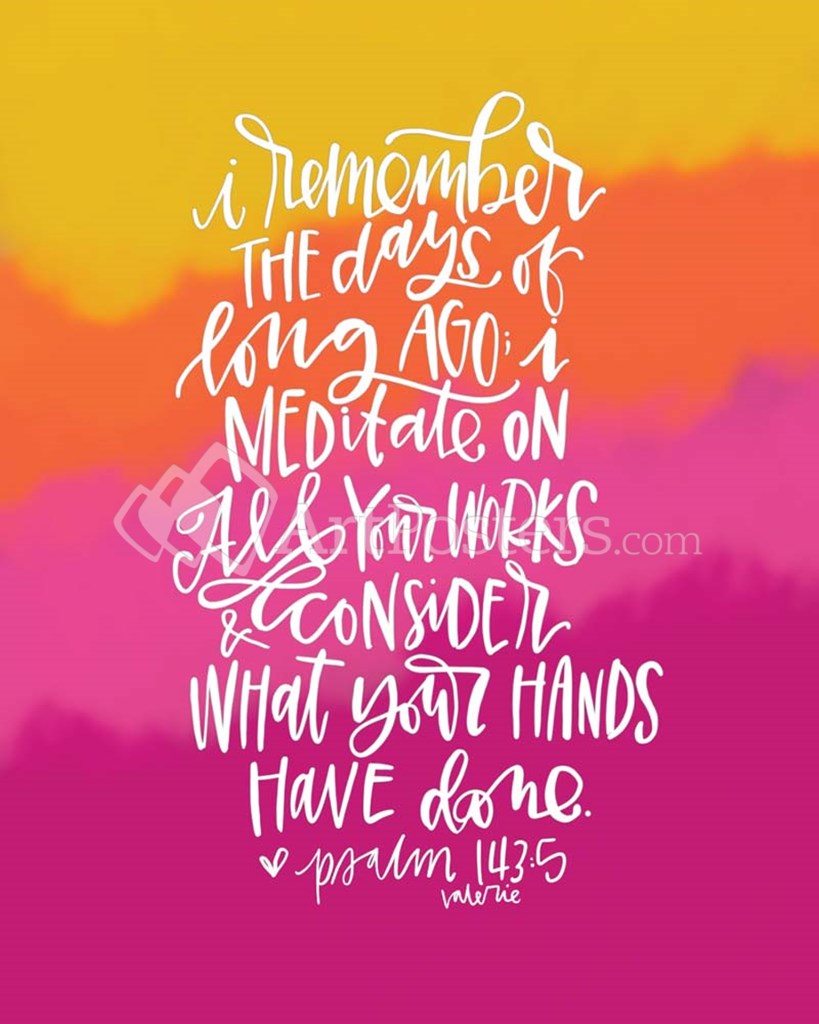 i remember
THE days of
long AGO; i
MEDitate ON
All Your WORKS
& CONSIDER
WHat your HANDS
HAVE done.
psalm 143:5
valerie
ArtPosters.com